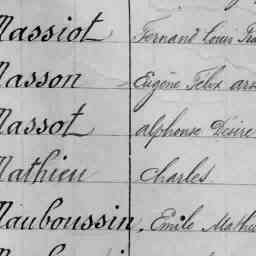 Massiot Fernand Louis
Masson Eugène Felix
Massot alphonse Désiré
Mathieu Charles
Mauboussin, Emile Mathu